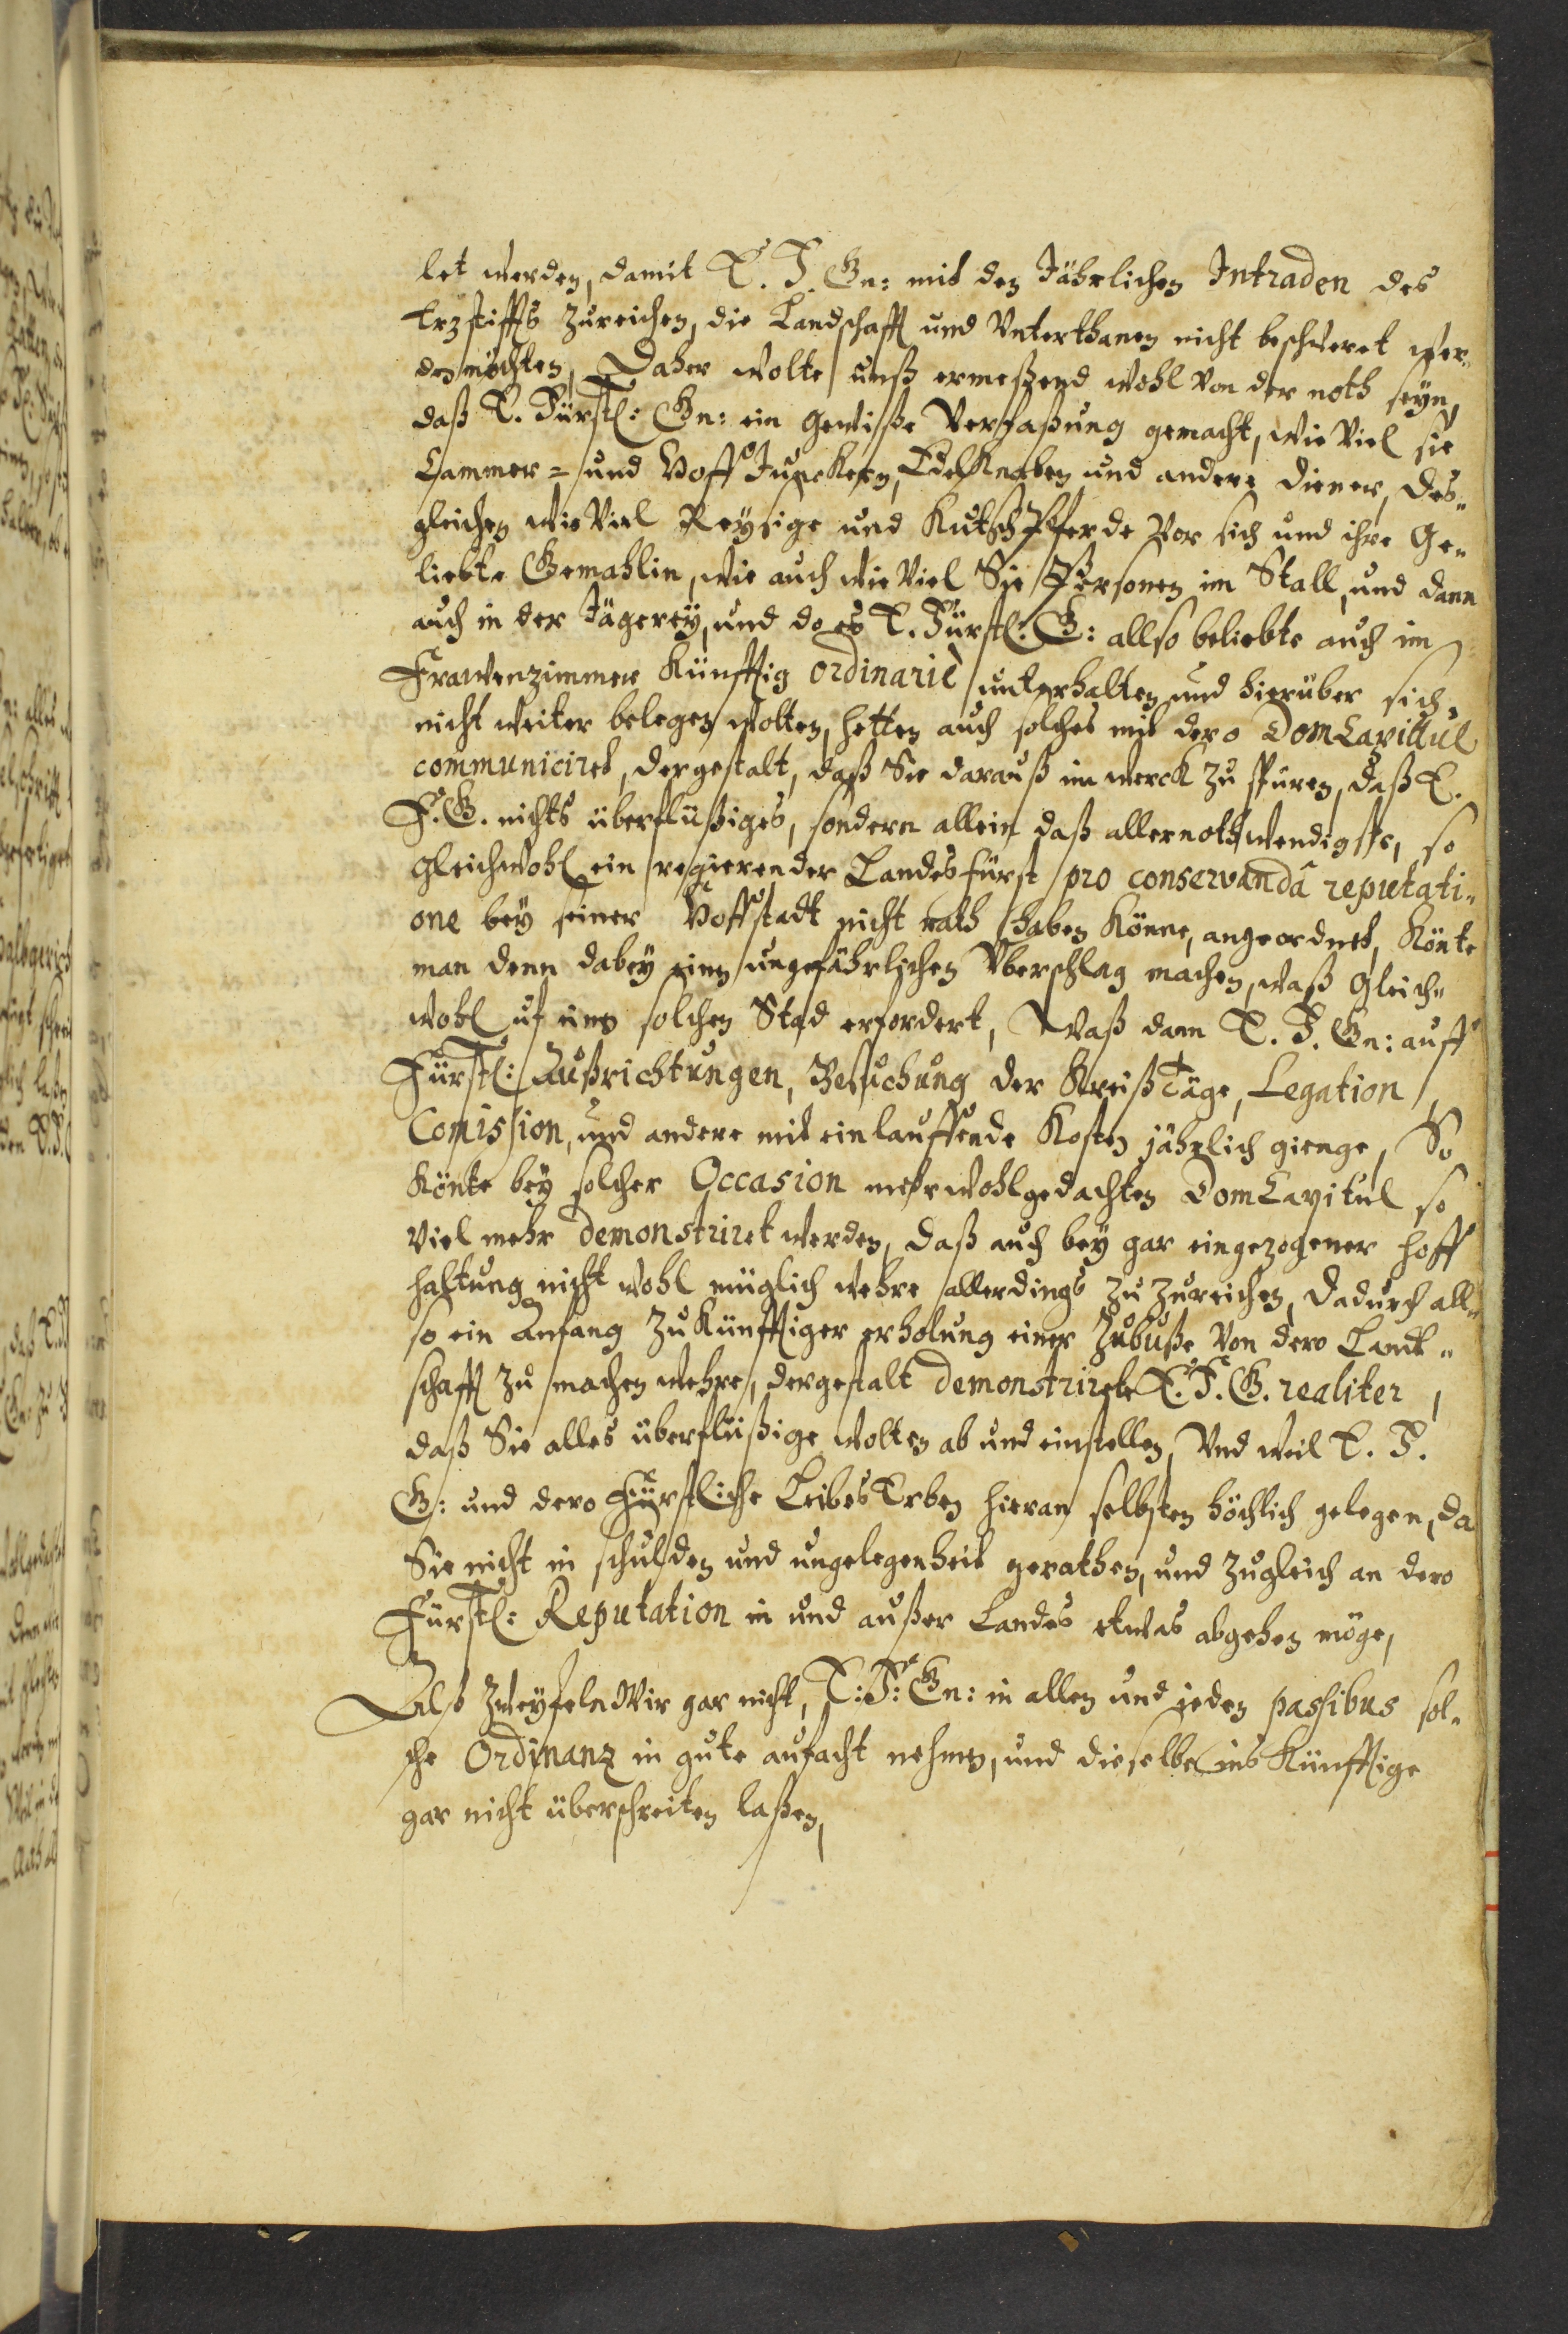 let werden, damit E. F. Gn: mit den Jährlichen Intraden des
Erzstiffts zureichen, die Landschafft und Unterthanen nicht beschweret wer„
den möchten, Daher wolte unß ermeßend wohl von der noth seyn,
daß E. Fürstl: Gn: ein gewiße Verfaßung gemacht, wie viel sie
Cammer = und Hoff Junckern, EdelKnaben und andere diener, des„
gleichen wie viel Reysige und KutschPferde vor sich und ihre Ge„
liebte Gemahlin, wie auch wie viel Sie Personen im Stall, und dann
auch in der Jägerey, und do es E. Fürstl: G: allso beliebte auch im
Frawenzimmer Künfftig ordinariè unterhalten und hierüber sich
nicht weiter belegen wolten, hetten auch solches mit dero DomCapittul
communiciret, dergestalt, daß Sie darauß im werck zu spuren, daß E.
F. G. nichts überflüßiges, sondern allein daß allernothwendigste, so
gleichwohl ein regierender Landesfürst pro conservandâ reputati„
one bey seiner Hoffstadt nicht rath haben Könne, angeordnet, Könte
man denn dabey einen ungefährlichen Uberschlag machen, waß gleich„
wohl uf einen solchen Stad erfordert, Waß dann E. F. Gn: auff
Fürstl: Außrichtungen, Besuchung der KreißTäge, Legation,
Comission, und andere mit einlauffende Kosten jährlich gienge, So
Könte bey solcher Occasion mehrwohlgedachten DomCapitul so
viel mehr demonstriret werden, daß auch bey gar eingezogener hoff
haltung nicht wohl müglich wehre allerdings zu zureichen, dadurch all„
so ein Anfang zu Künfftiger erholung einer Zubuße von dero Landt„
schafft zu machen wehre, dergestalt demonstrirete E. F. G. realiter,
daß Sie alles überflüßige wolten ab und einstellen, Und weil E. F.
G: und dero Fürstliche LeibesErben hieran selbsten höchlich gelegen, da
Sie nicht in schulden und ungelegenheit gerathen, und zugleich an dero
Fürstl: Reputation in und außer Landes etwas abgehen möge,
Alß zweyfeln Wir gar nicht, E: F: Gn: in allen und jeden passibus sol„
che Ordinanz in gute aufacht nehmen, und dieselbe ins Künfftige
gar nicht überschreiten laßen,